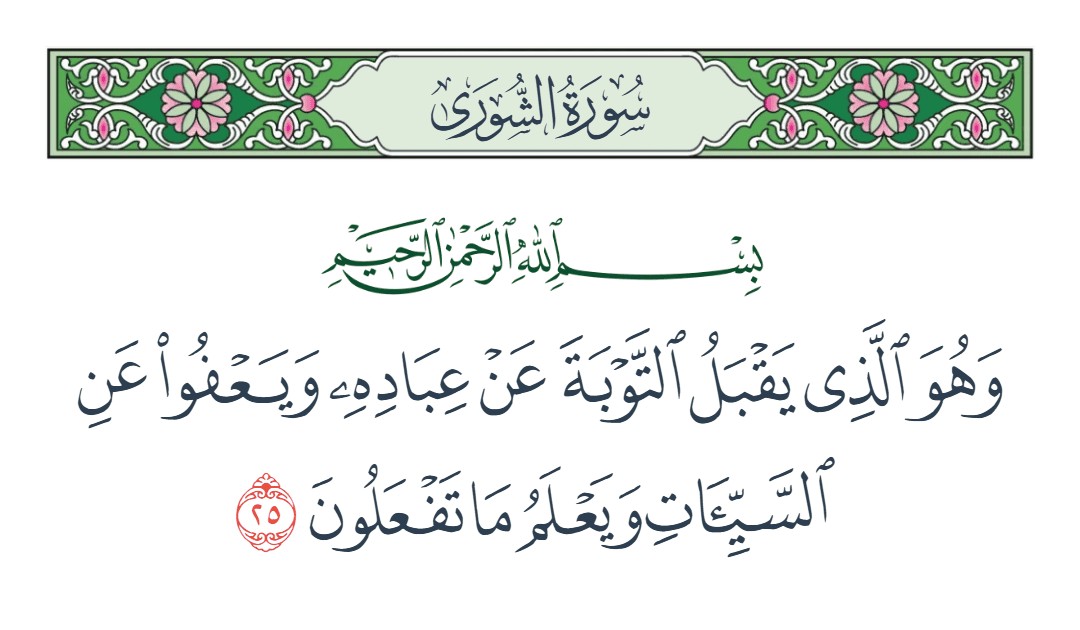 سُورَةُ الشُّورَىٰ
بِسْمِ ٱللَّهِ ٱلرَّحْمَٰنِ ٱلرَّحِيمِ
وَهُوَ ٱلَّذِى يَقْبَلُ ٱلتَّوْبَةَ عَنْ عِبَادِهِۦ وَيَعْفُوا۟ عَنِ
ٱلسَّيِّـَٔاتِ وَيَعْلَمُ مَا تَفْعَلُونَ ٢٥